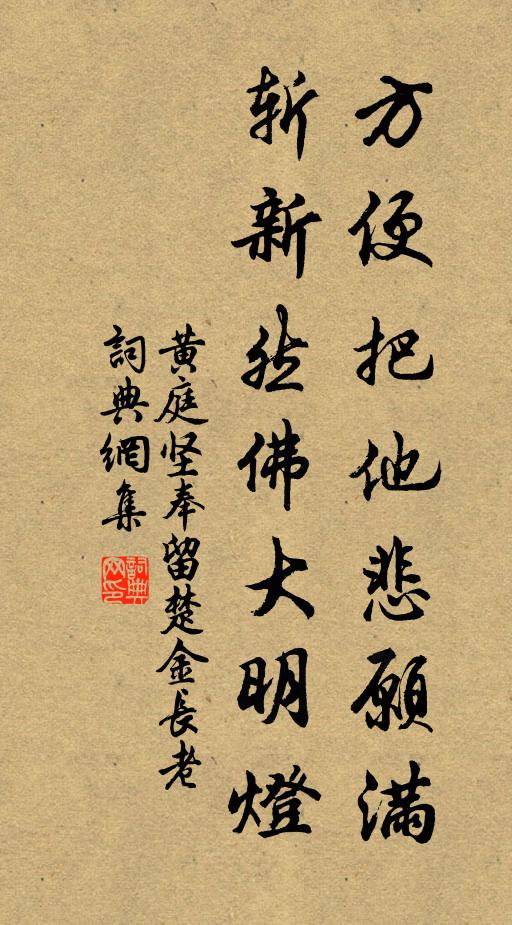 方便把他悲願滿
斬新然佛大明燈
黄庭坚奉留楚金長老
詞典網集
詞典网印